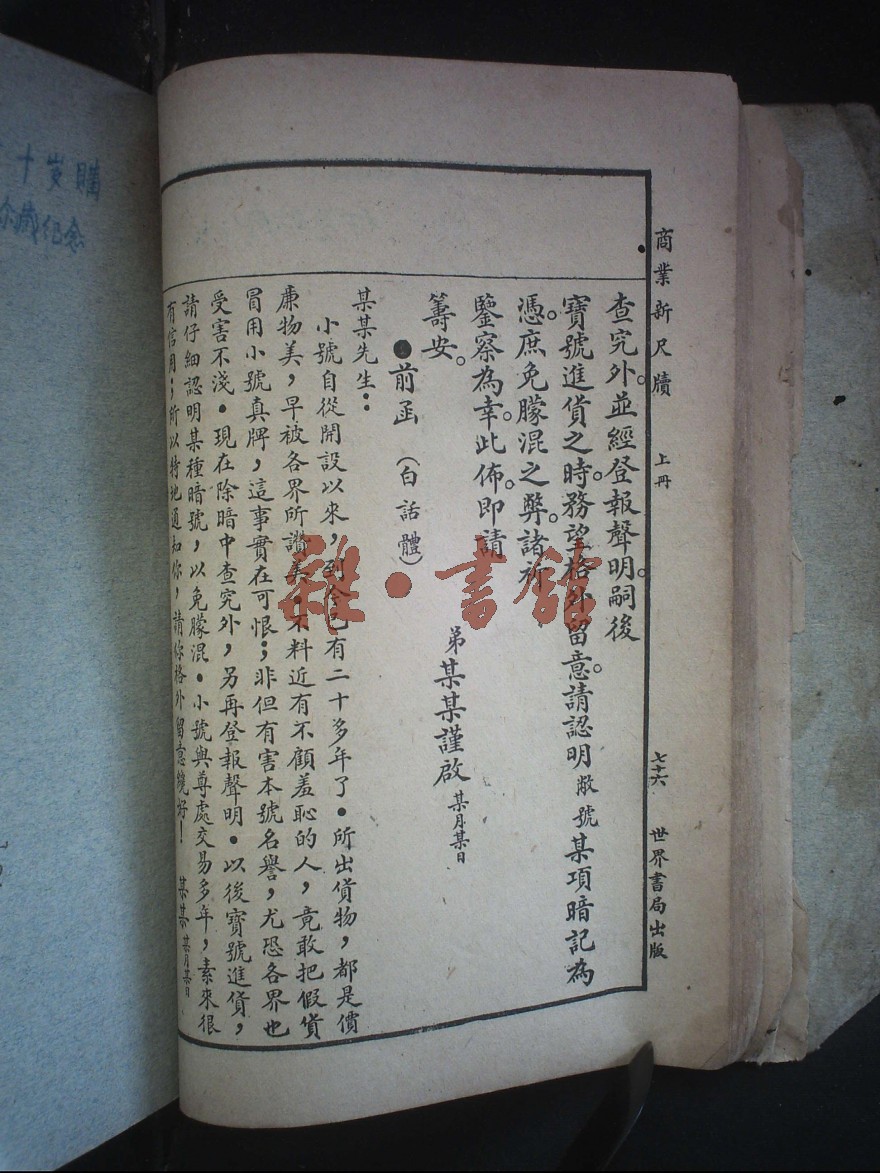 商業新尺牘 上冊 七十六 世界書局出版
查究外。並經登報聲明。嗣後
寶號進貨之時。務望格外留意。請認明敝號某項暗記為
憑。庶免朦混之弊。諸祈
鑒察為幸。此佈。即請
籌安。 弟某某謹啟 某月某日
●前函 (白話體)
某某先生：
小號自從開設以來，到今已有二十多年了．所出貨物，都是價
廉物美，早被各界所讚美．不料近有不顧羞恥的人，竟敢把假貨
冒用小號真牌，這事實在可恨；非但有害本號名譽，尤恐各界也
受害不淺．現在除暗中查究外，另再登報聲明．以後寶號進貨，
請仔細認明某種暗號，以免朦混．小號與尊處交易多年，素來很
有信用；所以特地通知你，請你格外留意纔好！ 某某 某月某日
雜·書館
十岁
纪念